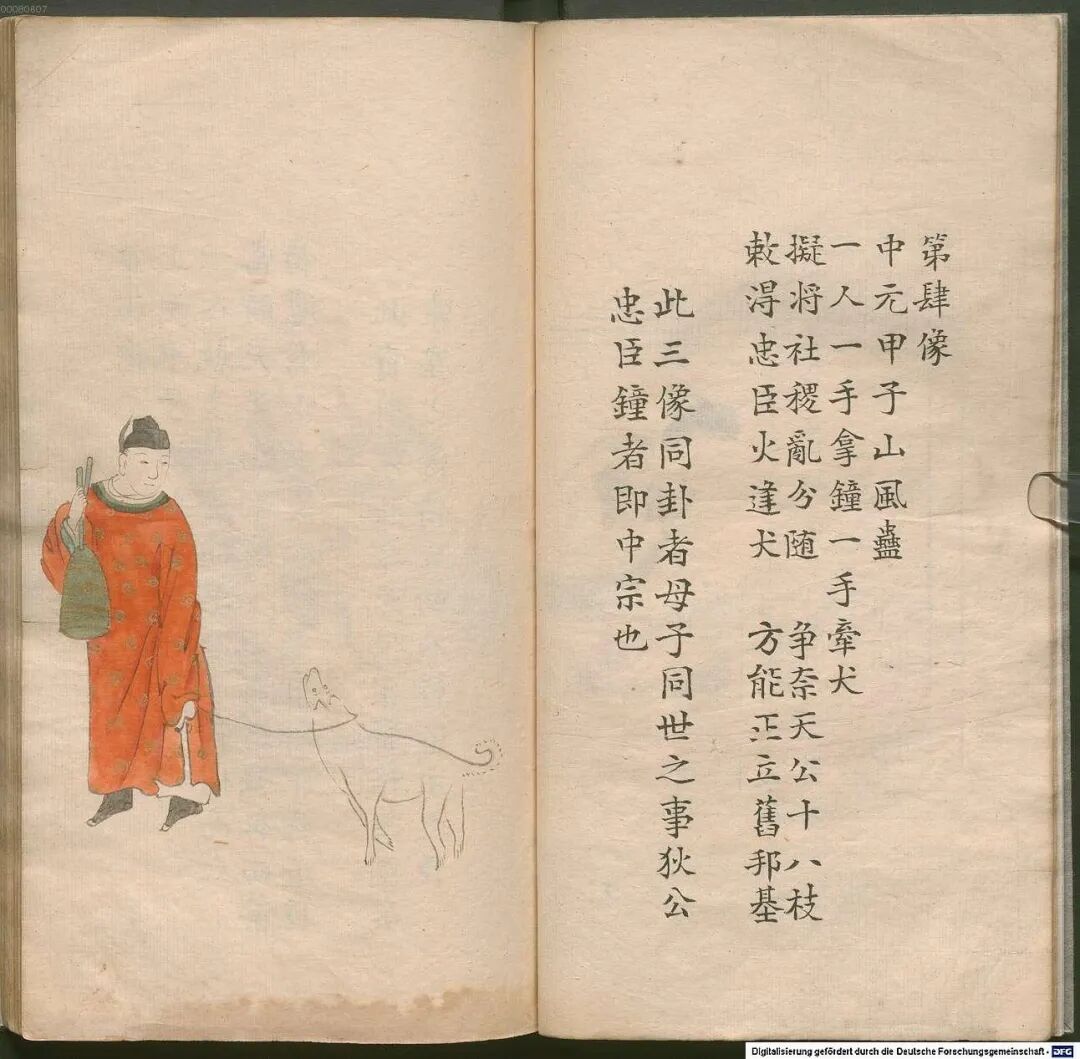 第肆像
中元甲子山風蠱
一人一手拿鐘一手牽犬
擬将社稷亂分随 争奈天公十八枝
敕淂忠臣火逢犬 方能正立舊邦基
此三像同卦者母子同世之事狄公
忠臣鐘者即中宗也
00080807
Digitalisierung gefördert durch die Deutsche Forschungsgemeinschaft - DFG